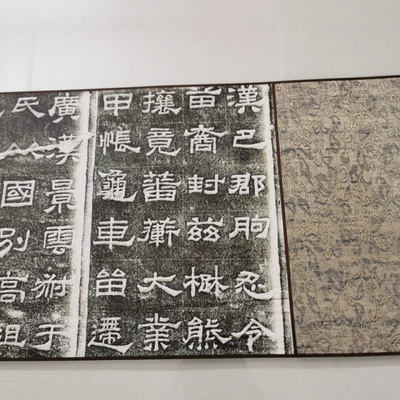 漢巴郡朐忍令
苗裔封茲楚熊
攘竟蕃衛大業
甲帳龜車留遰
廣漢景雲叔于
氏以國別高祖